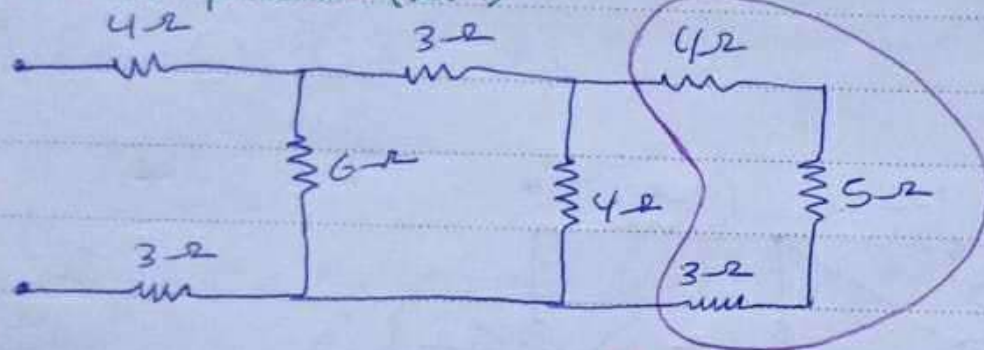 4Ω 3Ω 4Ω
6Ω 4Ω 5Ω
3Ω 3Ω